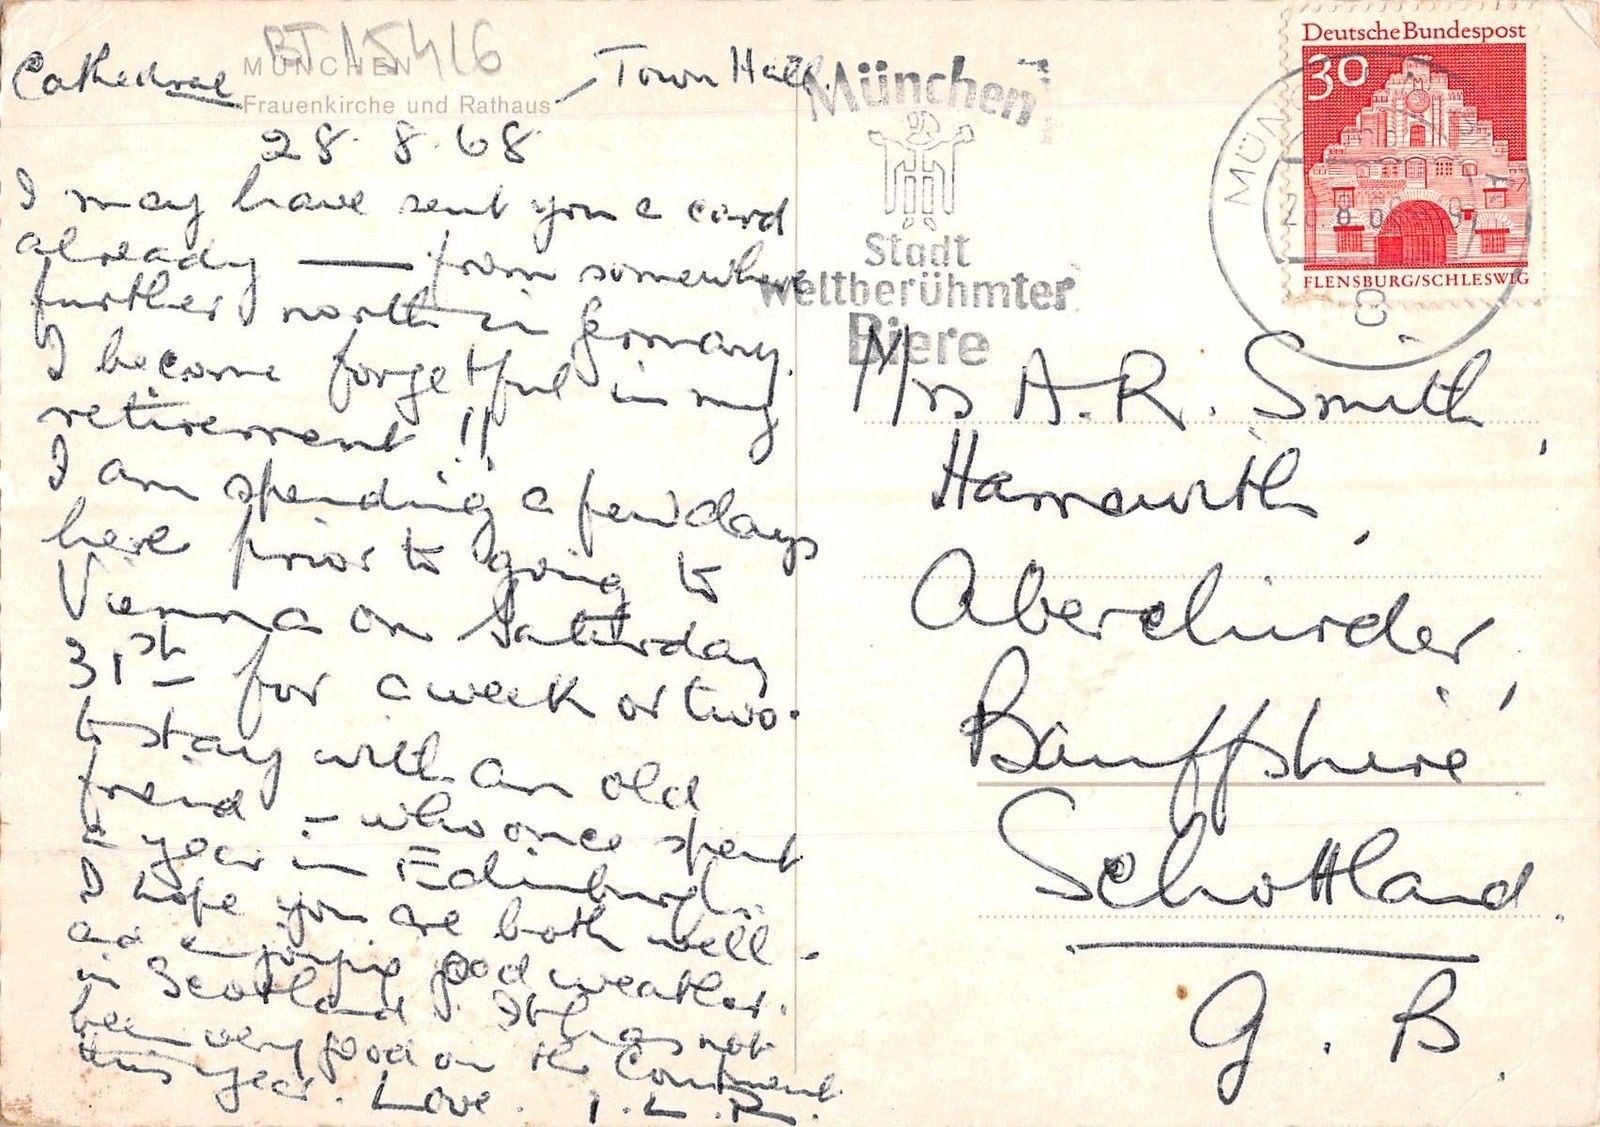 BT 15416
MÜNCHEN
Cathedral
Frauenkirche und Rathaus
Town Hall.
28. 8. 68
I may have sent you a card
already — from somewhere
further north in Germany.
I become forgetful in my
retirement !!
I am spending a few days
here prior to going to
Vienna on Saturday
31st for a week or two.
to stay with an old
friend - who once spent
a year in Edinburgh.
I hope you are both well -
and enjoying good weather.
in Scotland. It has not
been very good on the Continent
this year. Love. I.L.R.
München
Stadt
weltberühmter
Biere
Deutsche Bundespost
30
FLENSBURG/SCHLESWIG
Mrs A.R. Smith,
Aberchirder,
Banffshire
Schottland.
G. B.